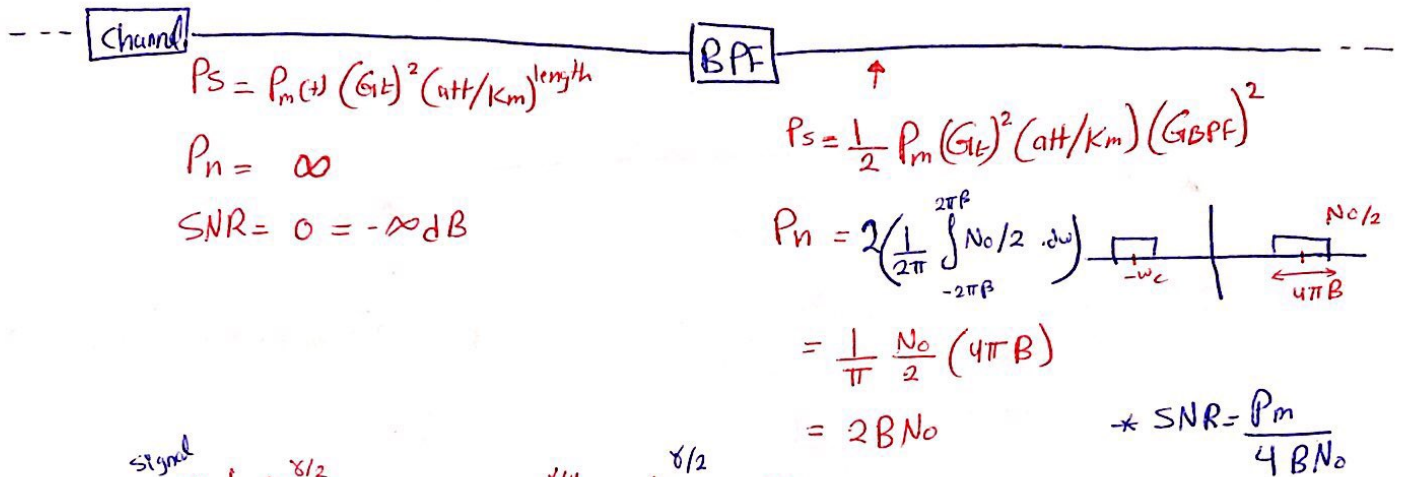 --- Channel BPF ---
Ps = Pm(t) (Gt)² (att/Km)^length
Pn = ∞
SNR = 0 = -∞ dB
Ps = 1/2 Pm (Gt)² (att/Km) (GBPF)²
Pn = 2(1/2π ∫_{-2πB}^{2πB} No/2 .dω)
No/2
-ωc
4πB
= 1/π No/2 (4πB)
= 2BNo
* SNR = Pm / 4BNo
signal
γ/2 γ/2